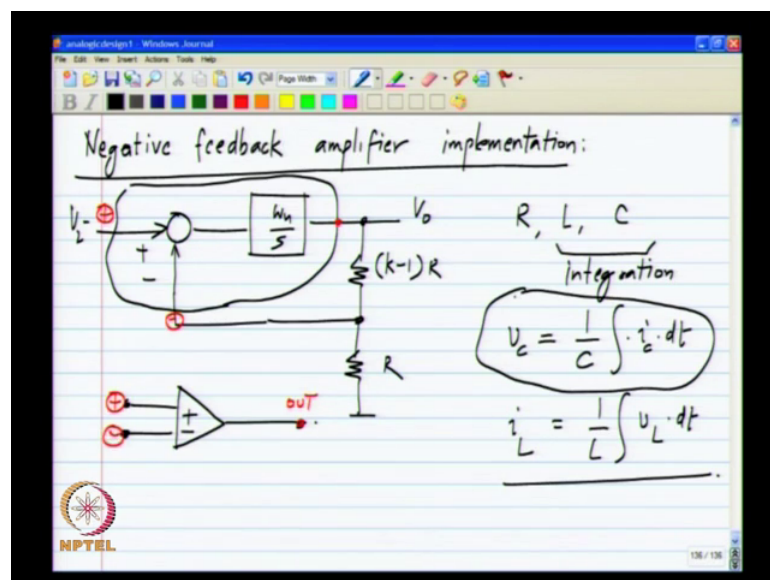 analogicdesign1 - Windows Journal
File Edit View Insert Actions Tools Help
Page Width
B I
Negative feedback amplifier implementation:
Vi + ωu/s Vo
+
-
(k-1)R
-
R
+ + OUT
- -
R, L, C
integration
v_c = 1/C ∫ · i_c · dt
i_L = 1/L ∫ v_L · dt
NPTEL
136 / 136